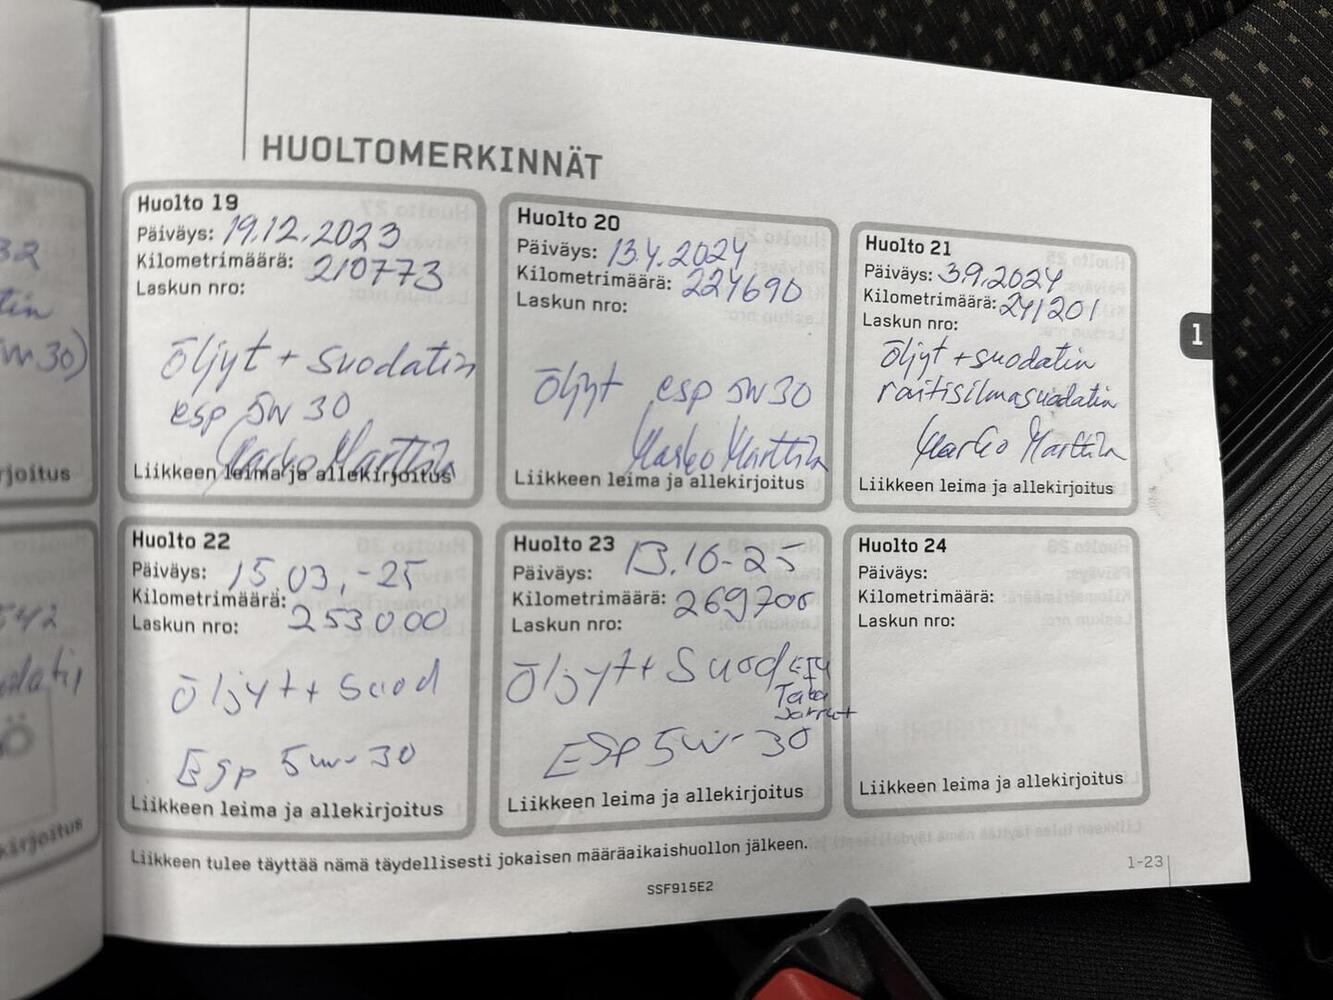 HUOLTOMERKINNÄT
Huolto 19
Päiväys: 19.12.2023
Kilometrimäärä: 210773
Laskun nro:
Öljyt + suodatin
esp 5w 30
Marko Marttila
Liikkeen leima ja allekirjoitus
Huolto 20
Päiväys: 13.4.2024
Kilometrimäärä: 224690
Laskun nro:
Öljyt esp 5w30
Marko Marttila
Liikkeen leima ja allekirjoitus
Huolto 21
Päiväys: 3.9.2024
Kilometrimäärä: 241201
Laskun nro:
Öljyt + suodatin
raitisilmasuodatin
Marko Marttila
Liikkeen leima ja allekirjoitus
Huolto 22
Päiväys: 15.03.-25
Kilometrimäärä: 253000
Laskun nro:
Öljyt + suod
Esp 5w-30
Liikkeen leima ja allekirjoitus
Huolto 23
Päiväys: 13.10-25
Kilometrimäärä: 269700
Laskun nro:
Öljyt + Suod
Taka
Jarrut
ESP 5w-30
Liikkeen leima ja allekirjoitus
Huolto 24
Päiväys:
Kilometrimäärä:
Laskun nro:
Liikkeen leima ja allekirjoitus
1
Liikkeen tulee täyttää nämä täydellisesti jokaisen määräaikaishuollon jälkeen.
1-23
SSF915E2